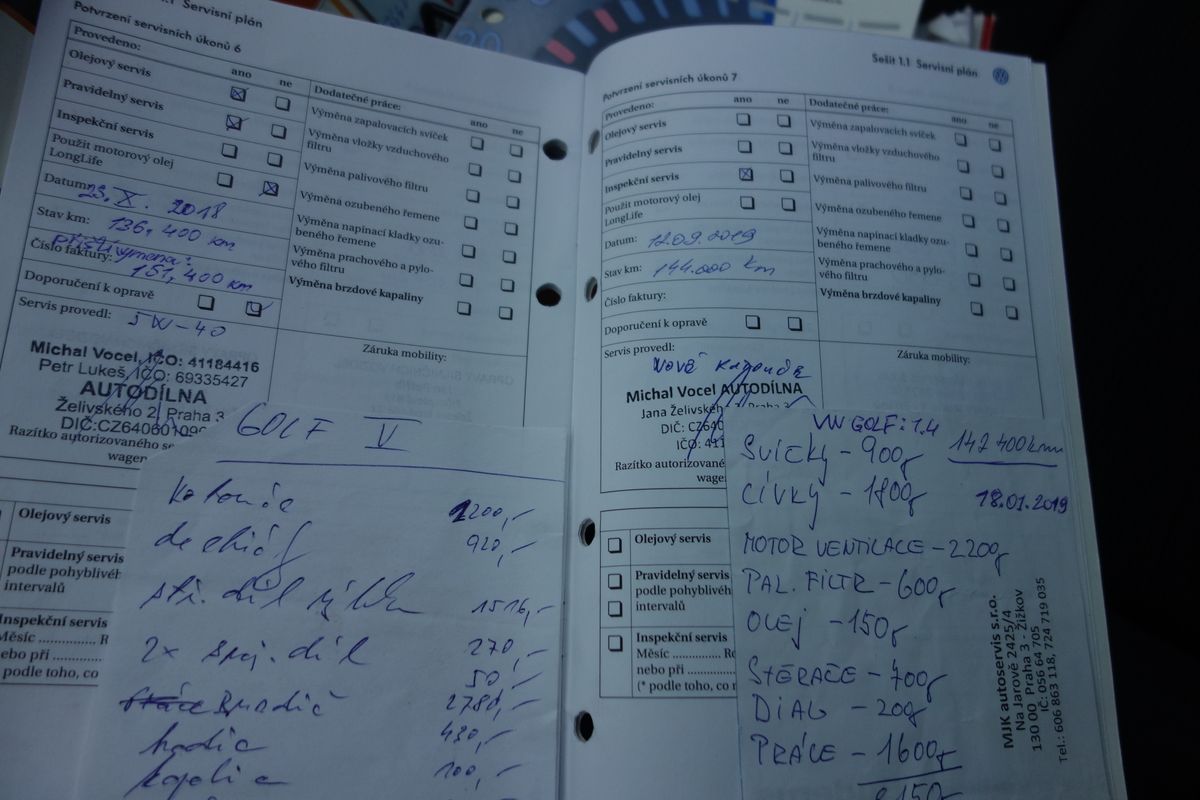 .1 Servisní plán
Potvrzení servisních úkonů 6
Provedeno:
ano
ne
Olejový servis
Pravidelný servis
Inspekční servis
Použit motorový olej
LongLife
Datum:
23. X. 2018
Stav km:
136.400 km
Číslo faktury:
příští výměna:
151,400 km
Doporučení k opravě
Servis provedl:
5W-40
Michal Vocel, IČO: 41184416
Petr Lukeš, IČO: 69335427
AUTODÍLNA
Želivského 2, Praha 3
DIČ:CZ640601090
Razítko autorizovaného se
wagen
Dodatečné práce:
ano
ne
Výměna zapalovacích svíček
Výměna vložky vzduchového
filtru
Výměna palivového filtru
Výměna ozubeného řemene
Výměna napínací kladky ozu-
beného řemene
Výměna prachového a pylo-
vého filtru
Výměna brzdové kapaliny
Záruka mobility:
Olejový servis
Pravidelný servis
podle pohyblivéh
intervalů
Inspekční servis
Měsíc .............. R
nebo při
podle toho, co
GOLF V
1200,-
920,-
1516,-
2x spoj. díl 270,-
50,-
2780,-
hadic 480,-
100,-
Sešit 1.1 Servisní plán
Potvrzení servisních úkonů 7
Provedeno:
ano
ne
Olejový servis
Pravidelný servis
Inspekční servis
Použit motorový olej
LongLife
Datum: 12.09.2019
Stav km: 144.000 km
Číslo faktury:
Doporučení k opravě
Servis provedl:
Michal Vocel AUTODÍLNA
Jana Želivského 2 Praha 3
DIČ: CZ640
IČO: 411
Razítko autorizovaného
wagen
Dodatečné práce:
ano
ne
Výměna zapalovacích svíček
Výměna vložky vzduchového
filtru
Výměna palivového filtru
Výměna ozubeného řemene
Výměna napínací kladky ozu-
beného řemene
Výměna prachového a pylo-
vého filtru
Výměna brzdové kapaliny
Záruka mobility:
Olejový servis
Pravidelný servis
podle pohyblivé
intervalů
Inspekční servis
Měsíc .............. Ro
nebo při
(* podle toho, co n
VW GOLF: 1.4
142 400 km
SVÍČKY - 900,-
CÍVKY - 1800,-
18.01.2019
MOTOR VENTILACE - 2200,-
PAL. FILTR - 600,-
OLEJ - 150,-
STĚRAČE - 400,-
DIAG - 200,-
PRÁCE - 1600,-
MJK autoservis s.r.o.
Na Jarově 2425/4
130 00 Praha 3 - Žižkov
IČ: 056 64 705
Tel.: 606 863 118, 724 719 035